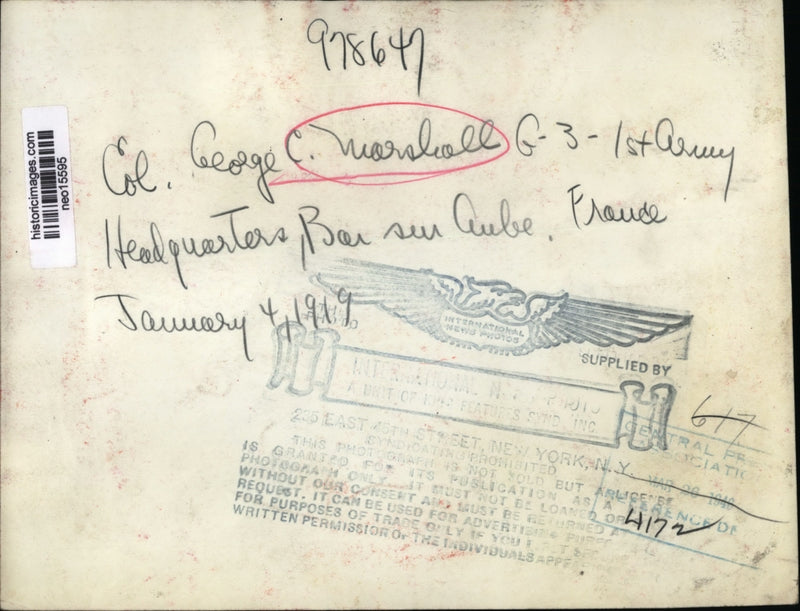 978647
historicimages.com
neo15595
Col. George C. Marshall G-3-1st Army
Headquarters, Bar sur Aube, France
January 4, 1919
INTERNATIONAL
NEWS PHOTOS
SUPPLIED BY
INTERNATIONAL N PHOTO
A UNIT OF KING FEATURES SYND., INC.
235 EAST 45TH STREET, NEW YORK, N.Y.
SYNDICATING PROHIBITED
THIS PHOTOGRAPH IS NOT SOLD BUT A LICENSE
IS GRANTED FOR ITS PUBLICATION AS A
PHOTOGRAPH ONLY. IT MUST NOT BE LOANED OR
WITHOUT OUR CONSENT AND MUST BE RETURNED
REQUEST. IT CAN BE USED FOR ADVERTISING PURP
FOR PURPOSES OF TRADE ONLY IF YOU
WRITTEN PERMISSION OF THE INDIVIDUALS APPE
617
CENTRAL PRE
SSOCIATIO
MAR
REFERENCE DE
4172